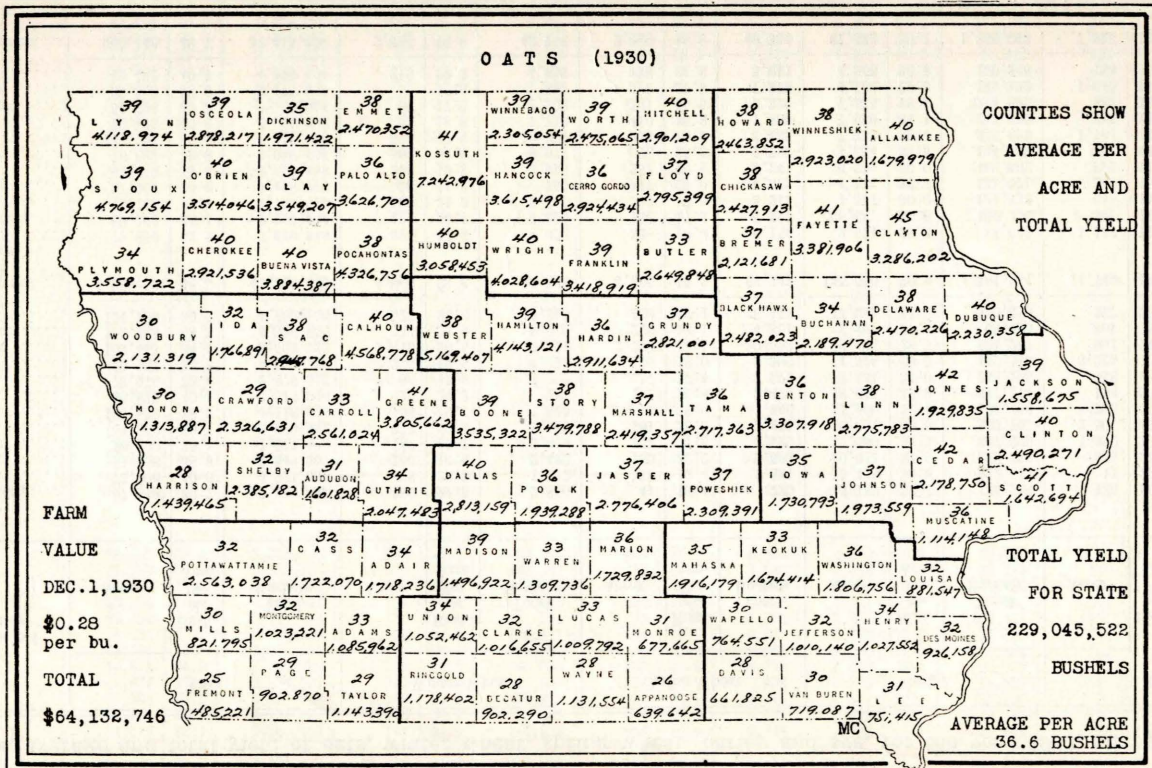 OATS (1930)
COUNTIES SHOW
AVERAGE PER
ACRE AND
TOTAL YIELD
39
LYON
4.118.974
39
OSCEOLA
2.878.217
35
DICKINSON
1.971.422
38
EMMET
2.470352
41
KOSSUTH
7.242.976
39
WINNEBAGO
2.305.054
39
WORTH
2.475,065
40
MITCHELL
2.901,209
38
HOWARD
2463,852
38
WINNESHIEK
2.923,020
40
ALLAMAKEE
1.679.979
39
SIOUX
4.769.154
40
O'BRIEN
3.514.046
39
CLAY
3.549,207
36
PALO ALTO
3.626,700
39
HANCOCK
3.615,498
36
CERRO GORDO
2.924,434
37
FLOYD
2.795,399
38
CHICKASAW
2.427.913
41
FAYETTE
3.381,906
45
CLAYTON
3.286,202
34
PLYMOUTH
3.558,722
40
CHEROKEE
2.921,536
40
BUENA VISTA
3.884,387
38
POCAHONTAS
4.326,756
40
HUMBOLDT
3.058,453
40
WRIGHT
4.028,604
39
FRANKLIN
3.418,919
33
BUTLER
2.649,848
37
BREMER
2.121,681
30
WOODBURY
2.131.319
32
IDA
1.766,891
38
SAC
40
CALHOUN
4.568,778
38
WEBSTER
5.169.407
39
HAMILTON
4.143,121
36
HARDIN
2.911,634
37
GRUNDY
2.821.001
37
BLACK HAWK
2.482.023
34
BUCHANAN
2.189.470
38
DELAWARE
2.470,226
40
DUBUQUE
2.230.358
30
MONONA
1.313,887
29
CRAWFORD
2.326,631
33
CARROLL
2.561.024
41
GREENE
3.805,662
39
BOONE
3.535,322
38
STORY
3.479.788
37
MARSHALL
2.419,357
36
TAMA
2.717,363
36
BENTON
3.307.918
38
LINN
2.775,783
42
JONES
1.929,835
39
JACKSON
1.558,675
40
CLINTON
2.490,271
28
HARRISON
1.439,465
32
SHELBY
2.385,182
31
AUDUBON
1.601.828
34
GUTHRIE
2.047,483
40
DALLAS
2,813,159
36
POLK
1.939,288
37
JASPER
2.776,406
37
POWESHIEK
2.309.391
35
IOWA
1.730,793
37
JOHNSON
1.973,559
42
CEDAR
2.178,750
41
SCOTT
1.642,694
36
MUSCATINE
1.114,148
FARM
VALUE
DEC.1,1930
$0.28
per bu.
TOTAL
$64,132,746
32
POTTAWATTAMIE
2.563,038
32
CASS
1.722,070
34
ADAIR
1.718,236
39
MADISON
1.496,922
33
WARREN
1.309,736
36
MARION
1.729,832
35
MAHASKA
1.916,179
33
KEOKUK
1.674.414
36
WASHINGTON
1.806,756
32
LOUISA
881,547
30
MILLS
821.795
32
MONTGOMERY
1.023,221
33
ADAMS
1.085,962
34
UNION
1.052,462
32
CLARKE
1.016,655
33
LUCAS
1.009,792
31
MONROE
677,665
30
WAPELLO
764.551
32
JEFFERSON
1.010,140
34
HENRY
1.027.552
32
DES MOINES
926,158
25
FREMONT
485,221
29
PAGE
902.870
29
TAYLOR
1.143,390
31
RINGGOLD
1,178,402
28
DECATUR
902,290
28
WAYNE
1.131,554
26
APPANOOSE
639,642
28
DAVIS
661.825
30
VAN BUREN
719.087
31
LEE
751,415
MC
TOTAL YIELD
FOR STATE
229,045,522
BUSHELS
AVERAGE PER ACRE
36.6 BUSHELS